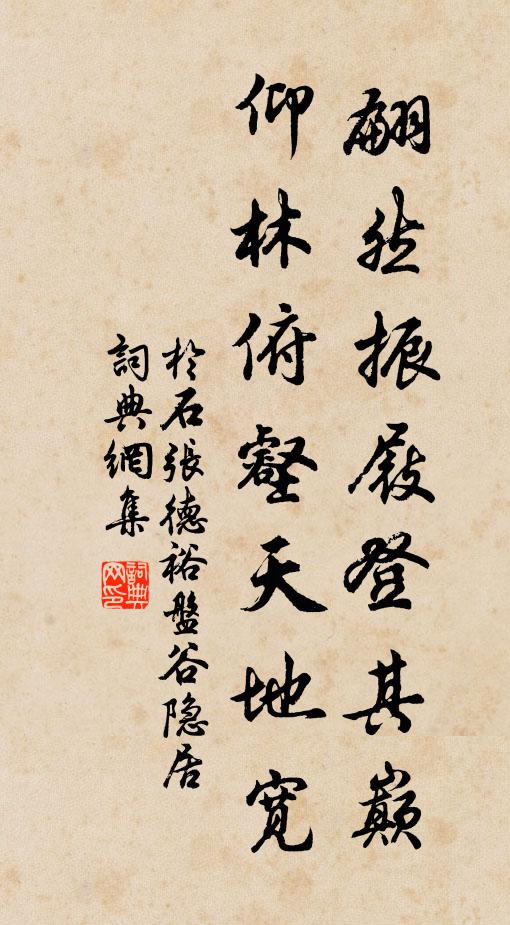 翩然振屐登其巅
仰林俯壑天地寬
於石張德裕盤谷隐居
詞典網集
詞典网印